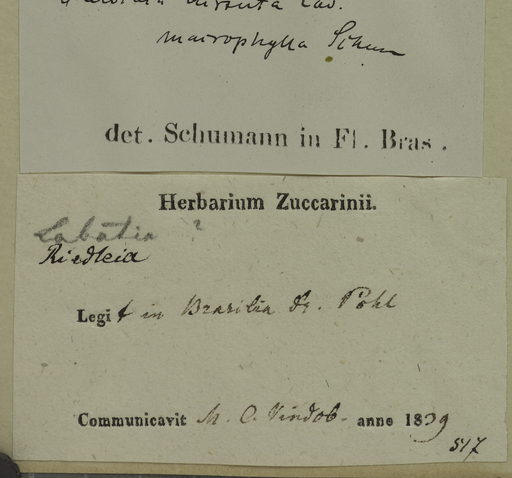 hirsuta Cav.
macrophylla Schum
det. Schumann in Fl. Bras.
Herbarium Zuccarinii.
Labatia ?
Riedleia
Legit in Brasilia Dr. Pohl
Communicavit M. C. Vindob. anno 1839
517